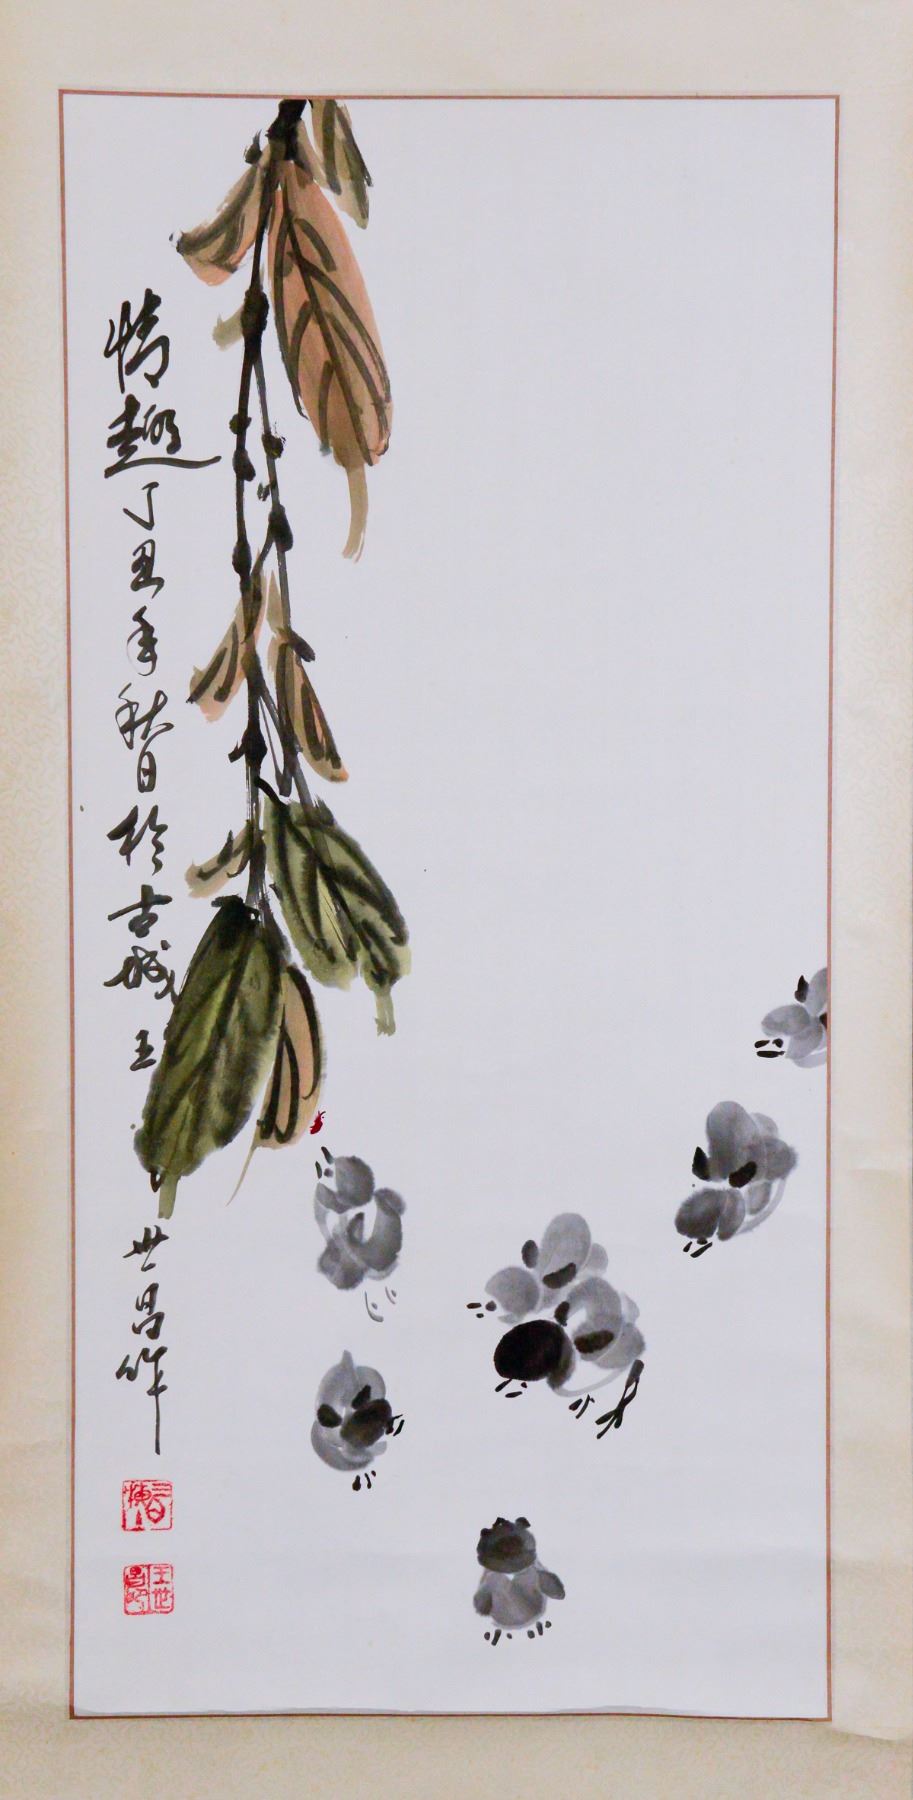 情趣丁丑年秋日於古城王世昌作
王世昌印